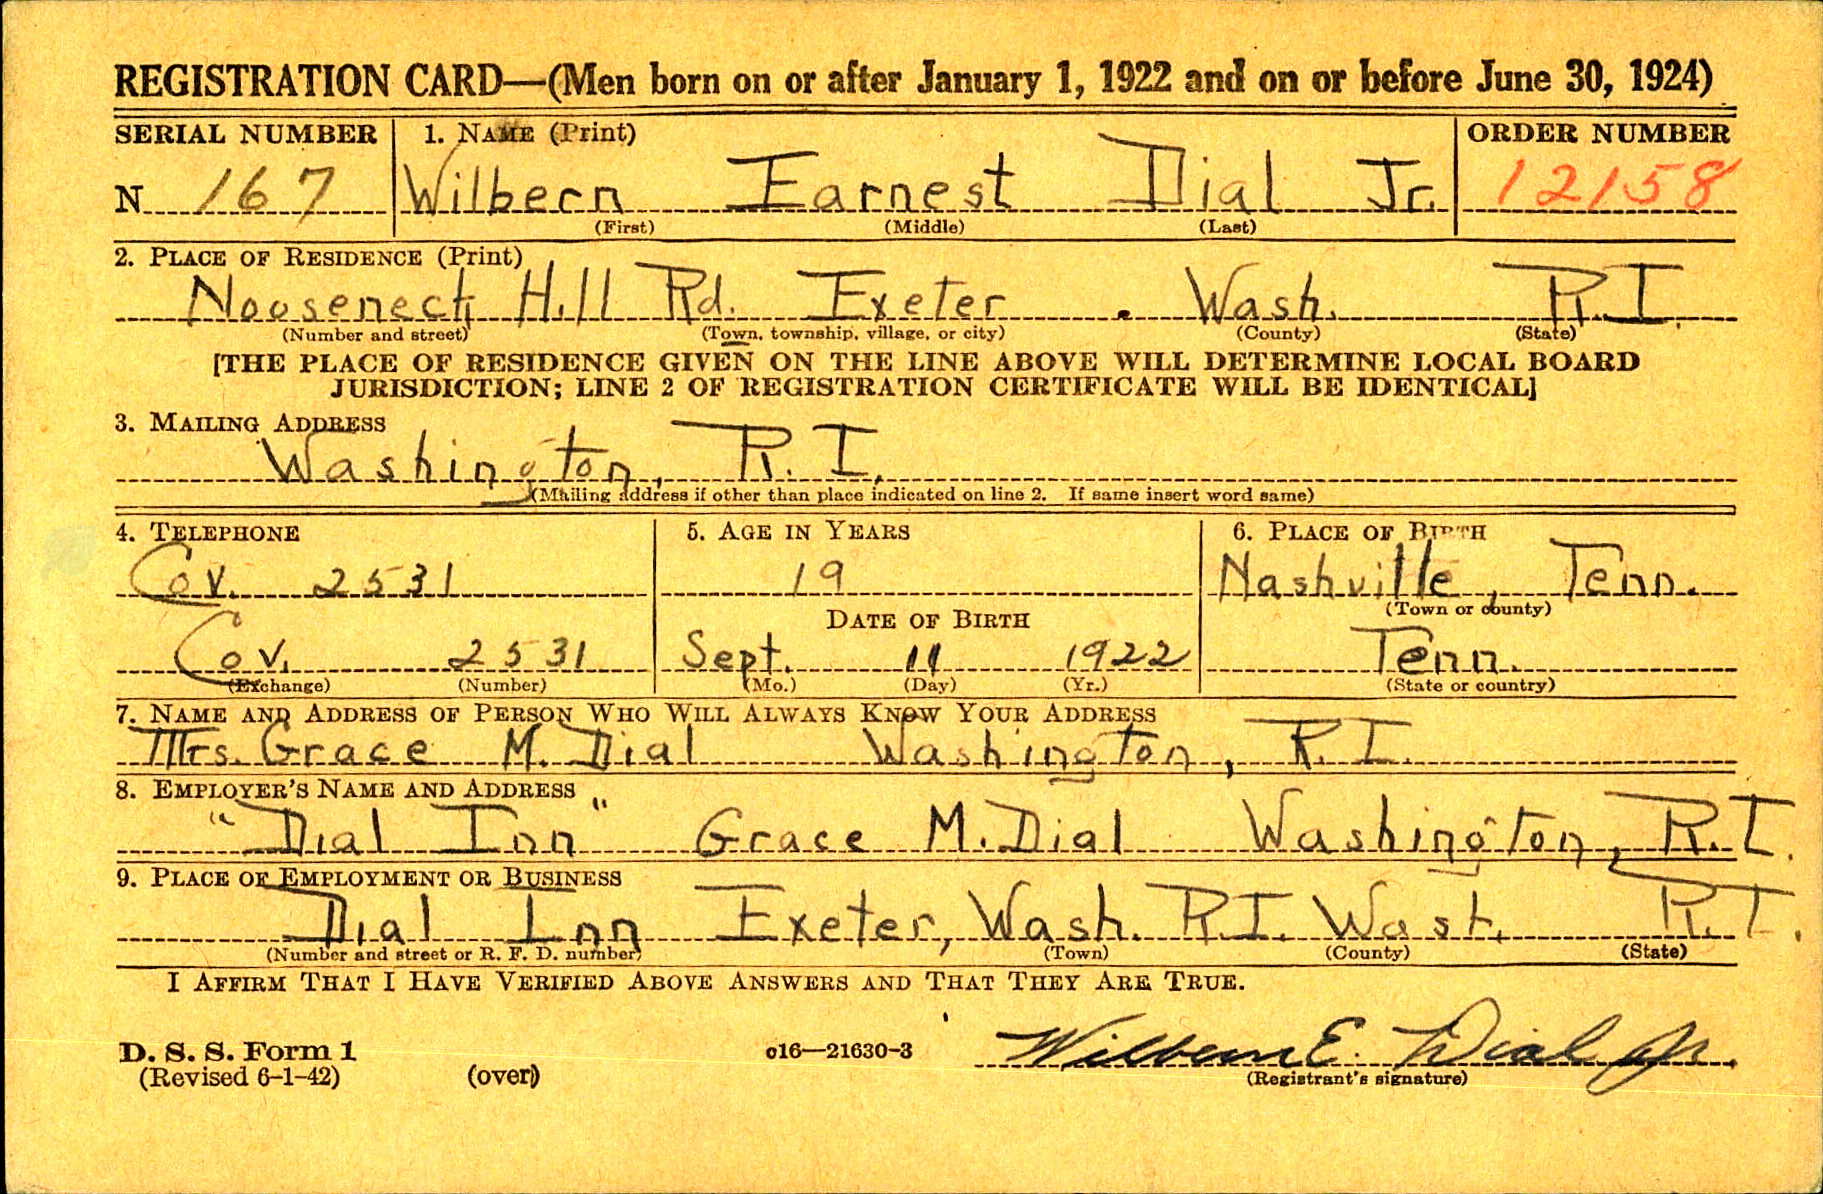 REGISTRATION CARD—(Men born on or after January 1, 1922 and on or before June 30, 1924)
SERIAL NUMBER 1. NAME (Print) ORDER NUMBER
N 167 Wilbern Earnest Dial Jr. 12158
(First) (Middle) (Last)
2. PLACE OF RESIDENCE (Print)
Nooseneck Hill Rd. Exeter . Wash. R.I.
(Number and street) (Town, township, village, or city) (County) (State)
[THE PLACE OF RESIDENCE GIVEN ON THE LINE ABOVE WILL DETERMINE LOCAL BOARD
JURISDICTION; LINE 2 OF REGISTRATION CERTIFICATE WILL BE IDENTICAL]
3. MAILING ADDRESS
Washington, R.I.
(Mailing address if other than place indicated on line 2. If same insert word same)
4. TELEPHONE 5. AGE IN YEARS 6. PLACE OF BIRTH
Cov. 2531 19 Nashville, Tenn.
(Town or county)
DATE OF BIRTH
Cov. 2531 Sept. 11 1922 Tenn.
(Exchange) (Number) (Mo.) (Day) (Yr.) (State or country)
7. NAME AND ADDRESS OF PERSON WHO WILL ALWAYS KNOW YOUR ADDRESS
Mrs. Grace M. Dial Washington, R.I.
8. EMPLOYER'S NAME AND ADDRESS
"Dial Inn" Grace M. Dial Washington, R.I.
9. PLACE OF EMPLOYMENT OR BUSINESS
Dial Inn Exeter, Wash. R.I. Wash. R.I.
(Number and street or R. F. D. number) (Town) (County) (State)
I AFFIRM THAT I HAVE VERIFIED ABOVE ANSWERS AND THAT THEY ARE TRUE.
D. S. S. Form 1 c16—21630-3 Wilbern E. Dial Jr.
(Revised 6-1-42) (over) (Registrant's signature)